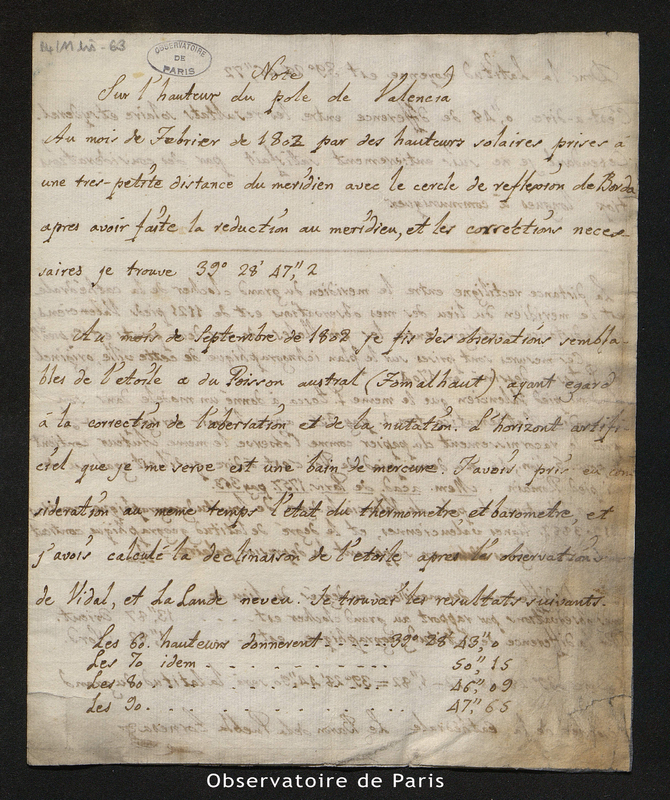 OBSERVATOIRE
DE
PARIS
Note
Sur l'hauteur du pole de Valencia
Au mois de Febrier de 1802 par des hauteurs solaires prises à
une tres-petite distance du meridien avec le cercle de reflexion de Borda
apres avoir faite la reduction au meridieu, et les corrections neces-
saires je trouve 39° 28' 47", 2
Au mois de Septembre de 1802 je fis des observations sembla-
bles de l'etoile α du Poisson austral (Fomalhaut) ayant egard
à la correction de l'aberration et de la nutation. L'horizont artifi-
ciel que je me serve est une bain de mercure. J'avois pris en con
sideration au meme temps l'état du thermometre et barometre, et
j'avois calculé la declinaison de l'etoile apres les observations
de Vidal, et La Lande neveu. Je trouvai les resultats suivants.
Les 60. hauteurs donnerent . . . . . 39° 28' 43", 0
Les 70 idem . . . . . . . . . . 50", 15
Les 80 . . . . . . . . . . . . 46", 09
Les 90. . . . . . . . . . . . . 47", 65
Observatoire de Paris